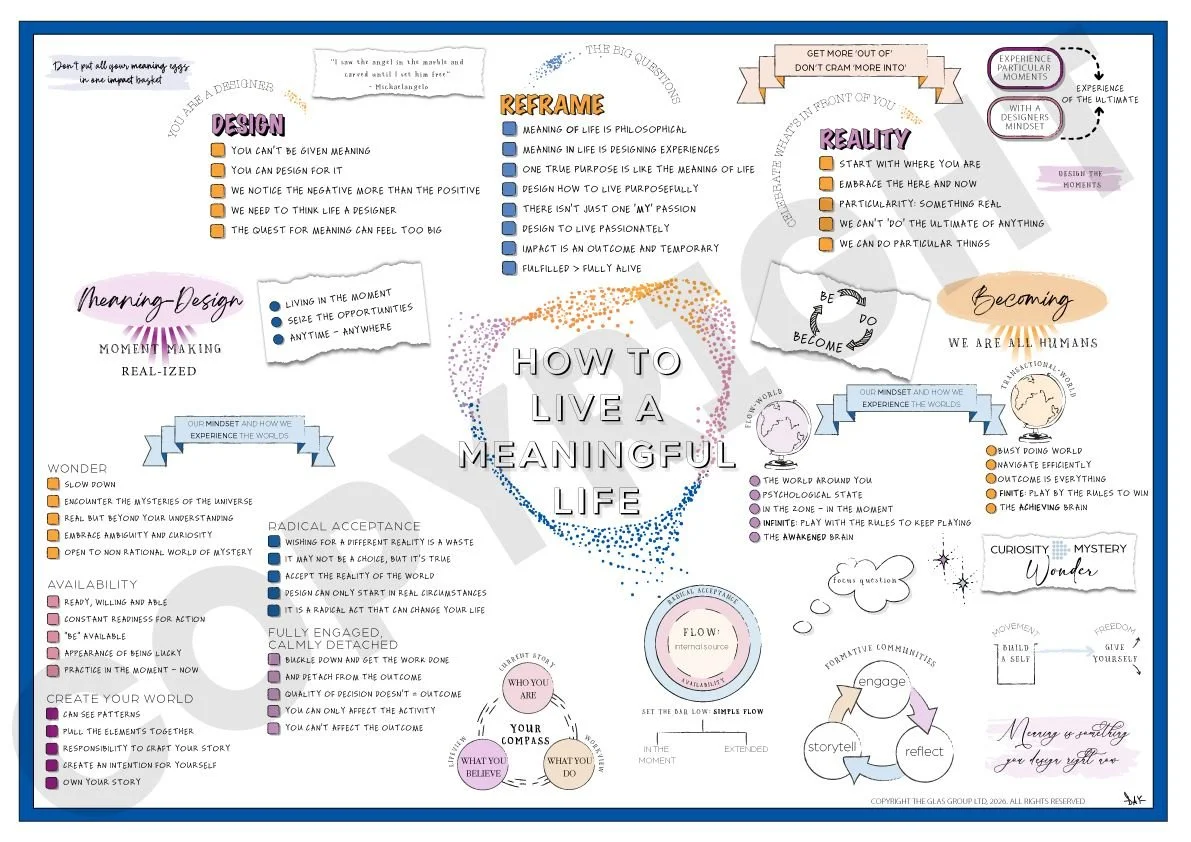 Don't put all your meaning eggs
in one impact basket
YOU ARE A DESIGNER
DESIGN
YOU CAN'T BE GIVEN MEANING
YOU CAN DESIGN FOR IT
WE NOTICE THE NEGATIVE MORE THAN THE POSITIVE
WE NEED TO THINK LIFE A DESIGNER
THE QUEST FOR MEANING CAN FEEL TOO BIG
"I saw the angel in the marble and
carved until I set him free"
- Michaelangelo
THE BIG QUESTIONS
REFRAME
MEANING OF LIFE IS PHILOSOPHICAL
MEANING IN LIFE IS DESIGNING EXPERIENCES
ONE TRUE PURPOSE IS LIKE THE MEANING OF LIFE
DESIGN HOW TO LIVE PURPOSEFULLY
THERE ISN'T JUST ONE 'MY' PASSION
DESIGN TO LIVE PASSIONATELY
IMPACT IS AN OUTCOME AND TEMPORARY
FULFILLED > FULLY ALIVE
GET MORE 'OUT OF'
DON'T CRAM 'MORE INTO'
CELEBRATE WHAT'S IN FRONT OF YOU
REALITY
START WITH WHERE YOU ARE
EMBRACE THE HERE AND NOW
PARTICULARITY: SOMETHING REAL
WE CAN'T 'DO' THE ULTIMATE OF ANYTHING
WE CAN DO PARTICULAR THINGS
EXPERIENCE
PARTICULAR
MOMENTS
WITH A
DESIGNERS
MINDSET
EXPERIENCE
OF THE ULTIMATE
DESIGN THE
MOMENTS
Meaning-Design
MOMENT MAKING
REAL-IZED
LIVING IN THE MOMENT
SEIZE THE OPPORTUNITIES
ANYTIME - ANYWHERE
HOW TO
LIVE A
MEANINGFUL
LIFE
BE
DO
BECOME
Becoming
WE ARE ALL HUMANS
OUR MINDSET AND HOW WE
EXPERIENCE THE WORLDS
WONDER
SLOW DOWN
ENCOUNTER THE MYSTERIES OF THE UNIVERSE
REAL BUT BEYOND YOUR UNDERSTANDING
EMBRACE AMBIGUITY AND CURIOSITY
OPEN TO NON RATIONAL WORLD OF MYSTERY
AVAILABILITY
READY, WILLING AND ABLE
CONSTANT READINESS FOR ACTION
"BE" AVAILABLE
APPEARANCE OF BEING LUCKY
PRACTICE IN THE MOMENT - NOW
CREATE YOUR WORLD
CAN SEE PATTERNS
PULL THE ELEMENTS TOGETHER
RESPONSIBILITY TO CRAFT YOUR STORY
CREATE AN INTENTION FOR YOURSELF
OWN YOUR STORY
RADICAL ACCEPTANCE
WISHING FOR A DIFFERENT REALITY IS A WASTE
IT MAY NOT BE A CHOICE, BUT IT'S TRUE
ACCEPT THE REALITY OF THE WORLD
DESIGN CAN ONLY START IN REAL CIRCUMSTANCES
IT IS A RADICAL ACT THAT CAN CHANGE YOUR LIFE
FULLY ENGAGED,
CALMLY DETACHED
BUCKLE DOWN AND GET THE WORK DONE
AND DETACH FROM THE OUTCOME
QUALITY OF DECISION DOESN'T = OUTCOME
YOU CAN ONLY AFFECT THE ACTIVITY
YOU CAN'T AFFECT THE OUTCOME
CURRENT STORY
WHO YOU
ARE
YOUR
COMPASS
LIFEVIEW
WHAT YOU
BELIEVE
WHAT YOU
DO
WORKVIEW
RADICAL ACCEPTANCE
FLOW:
internal source
AVAILABILITY
SET THE BAR LOW: SIMPLE FLOW
IN THE
MOMENT
EXTENDED
OUR MINDSET AND HOW WE
EXPERIENCE THE WORLDS
FLOW-WORLD
THE WORLD AROUND YOU
PSYCHOLOGICAL STATE
IN THE ZONE - IN THE MOMENT
INFINITE: PLAY WITH THE RULES TO KEEP PLAYING
THE AWAKENED BRAIN
TRANSACTIONAL-WORLD
BUSY DOING WORLD
NAVIGATE EFFICIENTLY
OUTCOME IS EVERYTHING
FINITE: PLAY BY THE RULES TO WIN
THE ACHIEVING BRAIN
focus question
CURIOSITY MYSTERY
Wonder
FORMATIVE COMMUNITIES
engage
storytell
reflect
MOVEMENT
BUILD
A SELF
FREEDOM
GIVE
YOURSELF
Meaning is something
you design right now
COPYRIGHT THE GLAS GROUP LTD, 2026. ALL RIGHTS RESERVED
DAK
COPYRIGHT